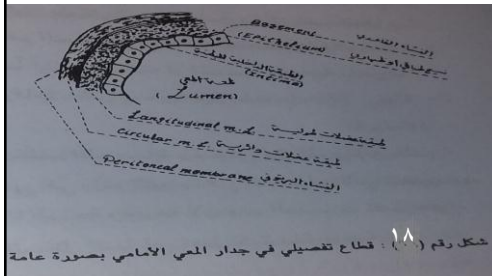 Basement الغشاء القاعدي
(Epithelium)
الطبقة الداخلية المبطنة
(Intima)
(Lumen)
Longitudinal m.L. طبقة عضلات طولية
Circular m.L. طبقة عضلات دائرية
Peritoneal membrane الغشاء البريتوني
شكل رقم (١٨) : قطاع تفصيلي في جدار المعي الأمامي بصورة عامة